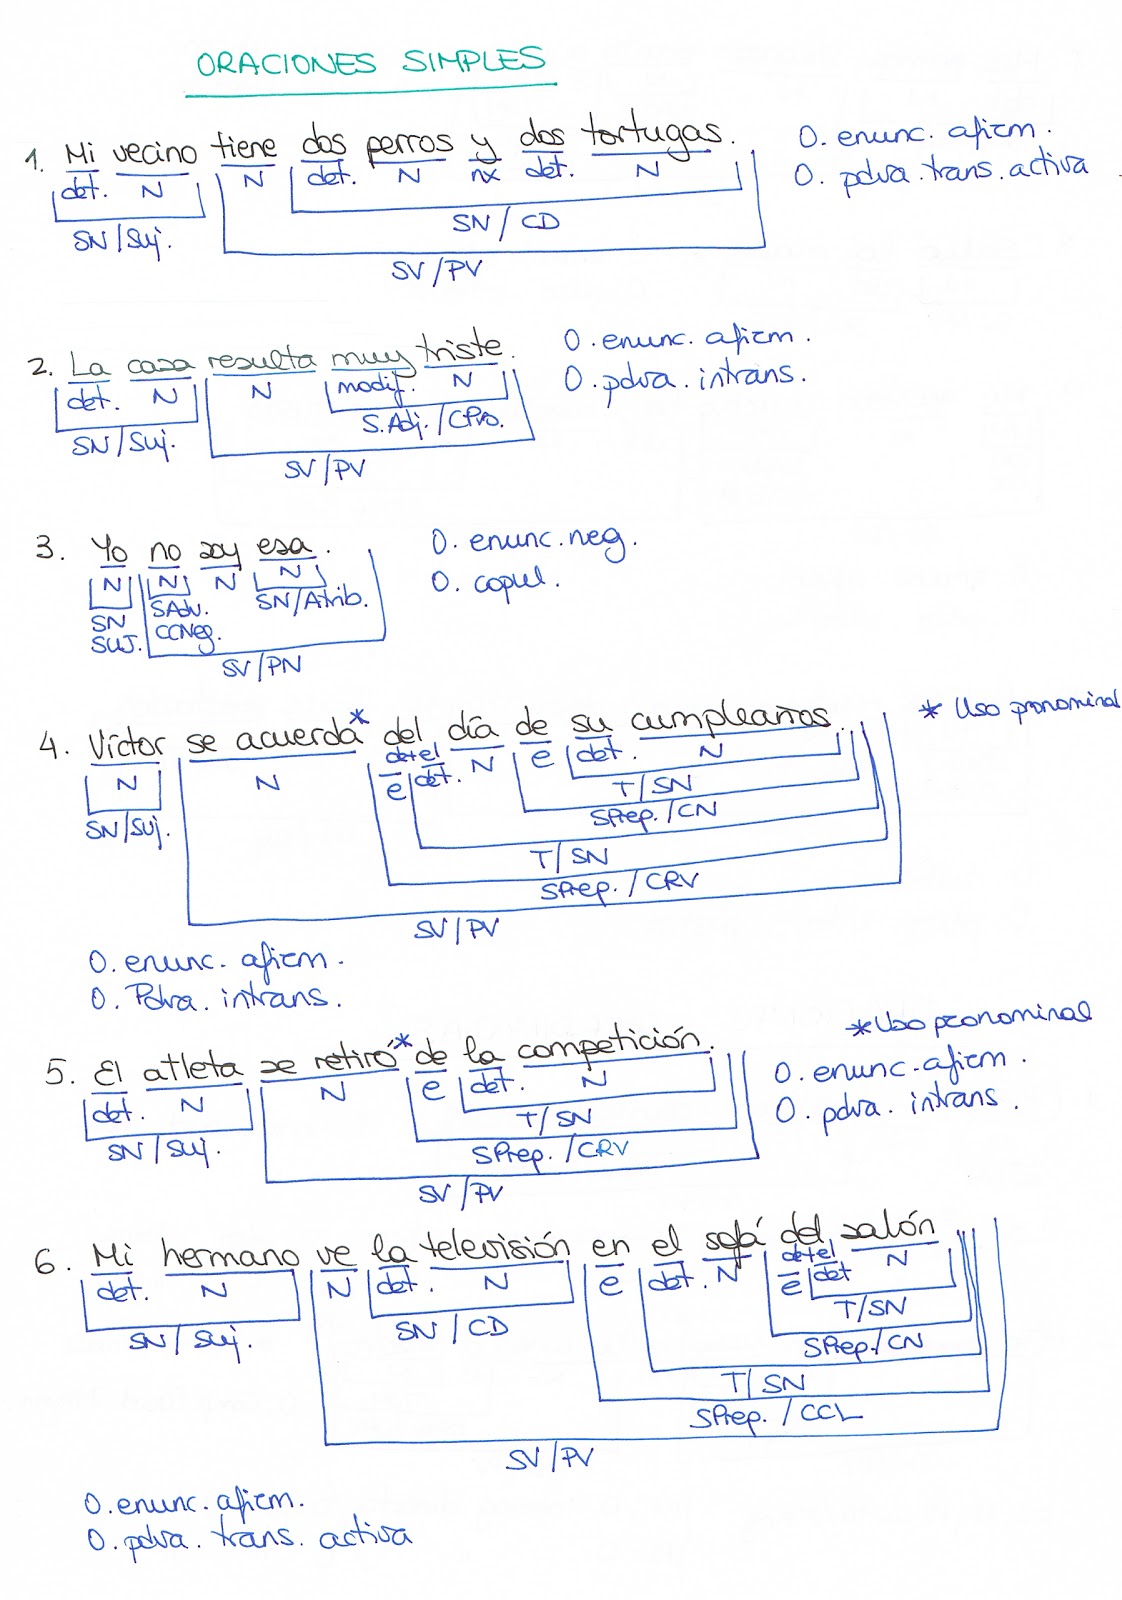 ORACIONES SIMPLES
1. Mi vecino tiene dos perros y dos tortugas. O. enunc. afirm.
det. N N det. N nx det. N O. pdva. trans. activa
SN/Suj. SN/CD
SV/PV
2. La casa resulta muy triste. O. enunc. afirm.
det. N N modif. N O. pdva. intrans.
SN/Suj. S.Adj./CPvo.
SV/PV
3. Yo no soy esa. O. enunc. neg.
N N N N O. copul.
SN SAdv. SN/Atrib.
SUJ. CCNeg.
SV/PN
4. Víctor se acuerda* del día de su cumpleaños. * Uso pronominal
de+el
N N e det. N e det. N
SN/Suj. T/SN
SPrep./CN
T/SN
SPrep./CRV
SV/PV
O. enunc. afirm.
O. Pdva. intrans.
5. El atleta se retiró* de la competición. *Uso pronominal
det. N N e det. N O. enunc. afirm.
SN/Suj. T/SN O. pdva. intrans.
SPrep./CRV
SV/PV
6. Mi hermano ve la televisión en el sofá del salón
de+el
det. N N det. N e det. N e det N
SN/Suj. SN/CD T/SN
SPrep./CN
T/SN
SPrep./CCL
SV/PV
O. enunc. afirm.
O. pdva. trans. activa